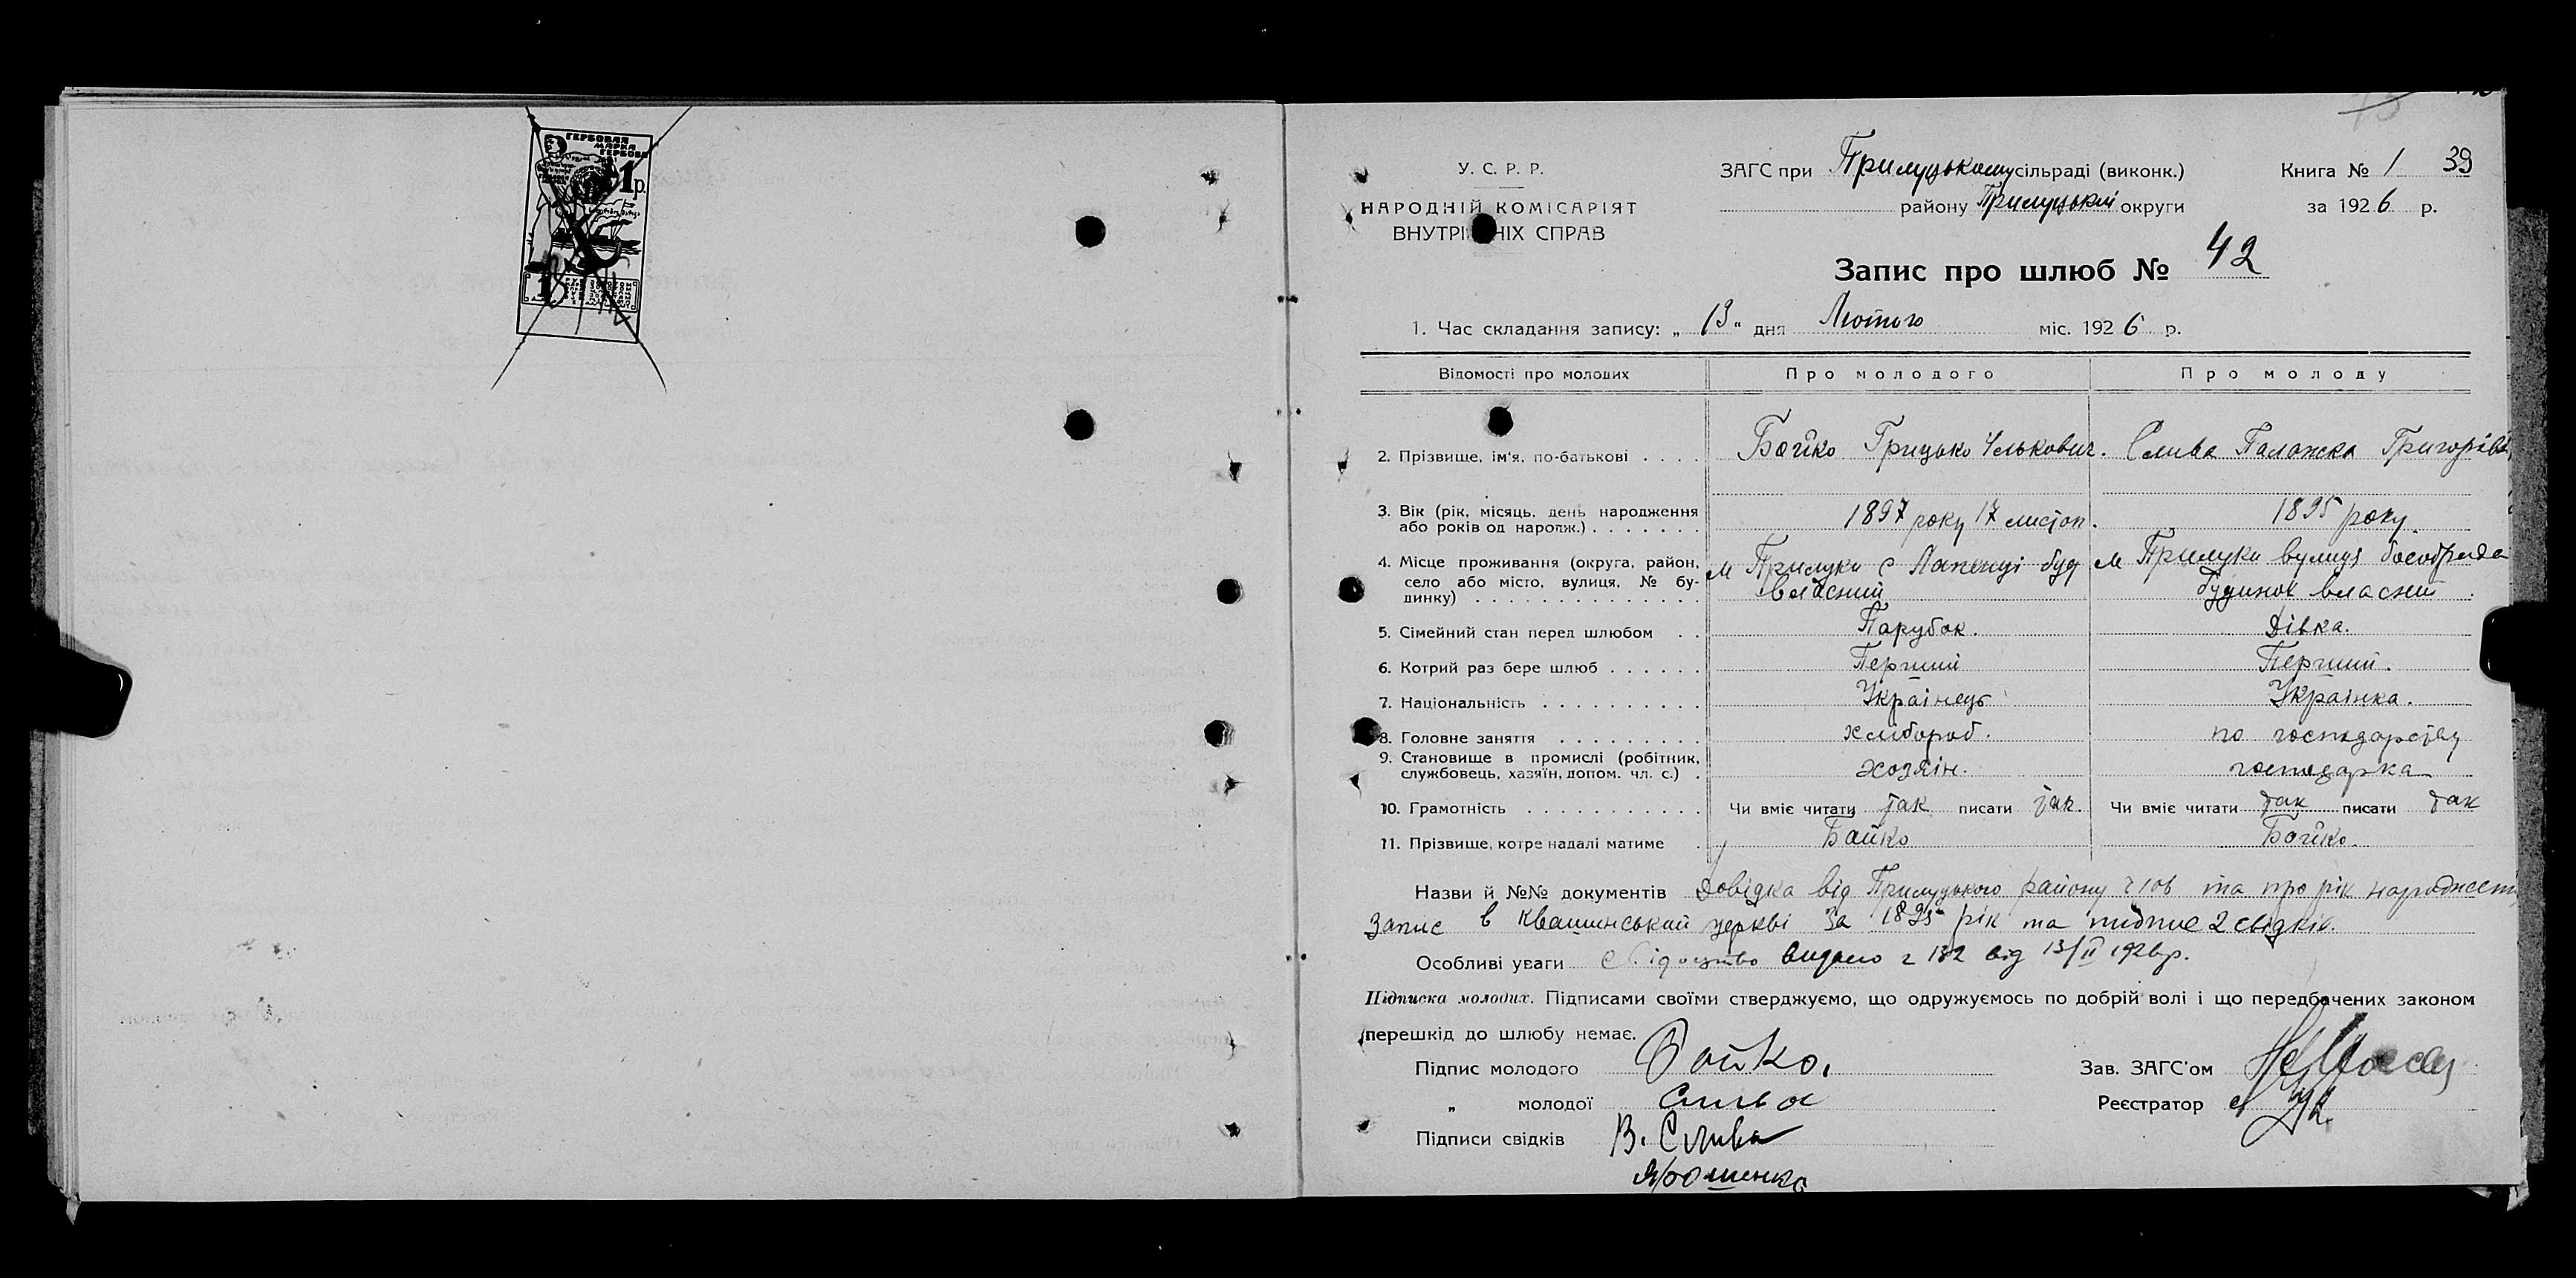 ГЕРБОВАЯ
МАРКА
ГЕРБОВА
1 р.
39
У. С. Р. Р.
ЗАГС при Прилуцькому сільраді (виконк.)
Книга № 1
НАРОДНІЙ КОМІСАРІЯТ
району Прилуцькій округи
за 1926 р.
ВНУТРІШНІХ СПРАВ
Запис про шлюб № 42
1. Час складання запису: „ 13 " дня Лютого міс. 1926 р.
Відомості про молодих
Про молодого
Про молоду
2. Прізвище, ім'я, по-батькові . . . .
Бойко Грицько Ількович.
Слива Палажка Григорівн
3. Вік (рік, місяць, день народження
або років од народж.) . . . . . . .
1897 року 17 листоп.
1895 року.
4. Місце проживання (округа, район,
село або місто, вулиця, № бу-
динку) . . . . . . . . . . . . . .
м Прилуки С Лапенці буд
власний
м Прилуки вулиця
будинок власний
5. Сімейний стан перед шлюбом . .
Парубок.
Дівка.
6. Котрий раз бере шлюб . . . . . .
Перший
Перший.
7. Національність . . . . . . . . . .
Українець
Українка.
8. Головне заняття . . . . . . . . .
хлібороб.
по господарству
9. Становище в промислі (робітник,
службовець, хазяїн, допом. чл. с.) .
хозяін.
господарка
10. Грамотність . . . . . . . . . . .
Чи вміє читати так писати так.
Чи вміє читати так писати так
11. Прізвище, котре надалі матиме .
Бойко
Бойко.
Назви й №№ документів Довідка від Прилуцького району та про рік народження
Запис в Квашинський церкві за 1895 рік та підпис 2 свідків.
Особливі уваги Свідоцтво видано 132 від 13/II 1926р.
Підписка молодих. Підписами своїми стверджуємо, що одружуємось по добрій волі і що передбачених законом
перешкід до шлюбу немає.
Підпис молодого Бойко.
Зав. ЗАГС'ом
„ молодої Слива
Реєстратор
Підписи свідків В. Слива
Ярошенко